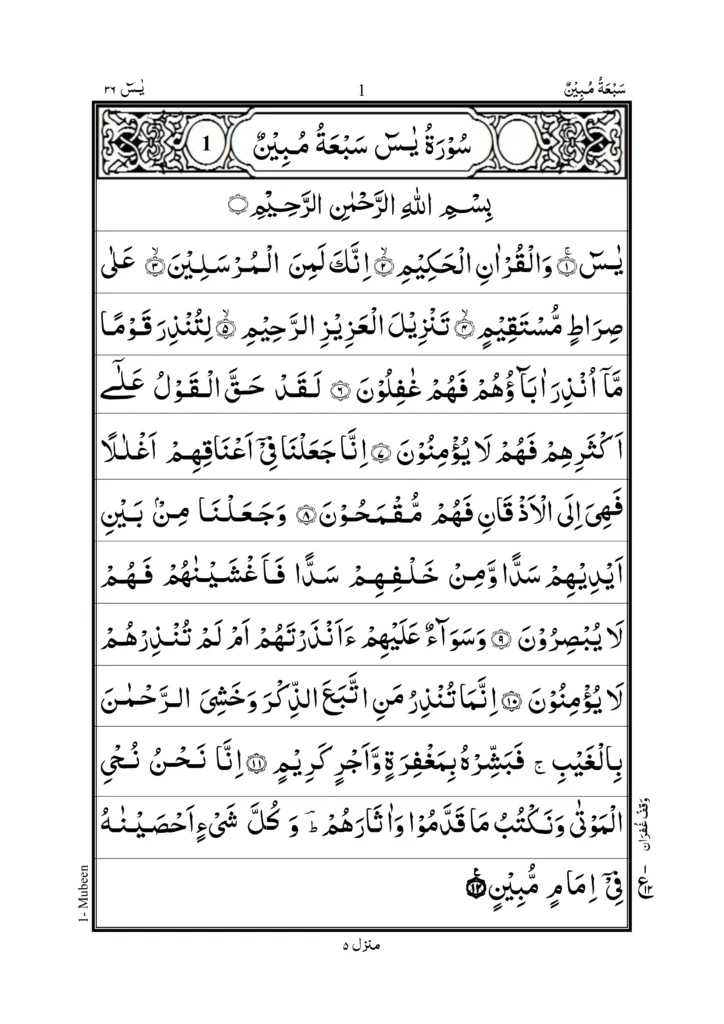 سَبْعَةُ مُبِيْنٌ
1
يٰسٓ ٣٦
سُوْرَةُ يٰسٓ سَبْعَةُ مُبِيْنٌ
1
بِسْمِ اللهِ الرَّحْمٰنِ الرَّحِيْمِ
يٰسٓ ۚ‏﴿١﴾ وَالْقُرْاٰنِ الْحَكِيْمِ ۙ‏﴿٢﴾ اِنَّكَ لَمِنَ الْمُرْسَلِيْنَ ۙ‏﴿٣﴾ عَلٰى
صِرَاطٍ مُّسْتَقِيْمٍ ۙ‏﴿٤﴾ تَنْزِيْلَ الْعَزِيْزِ الرَّحِيْمِ ۙ‏﴿٥﴾ لِتُنْذِرَ قَوْمًا
مَّآ اُنْذِرَ اٰبَآؤُهُمْ فَهُمْ غٰفِلُوْنَ ﴿٦﴾ لَقَدْ حَقَّ الْقَوْلُ عَلٰٓى
اَكْثَرِهِمْ فَهُمْ لَا يُؤْمِنُوْنَ ﴿٧﴾ اِنَّا جَعَلْنَا فِيْٓ اَعْنَاقِهِمْ اَغْلٰلًا
فَهِىَ اِلَى الْاَذْقَانِ فَهُمْ مُّقْمَحُوْنَ ﴿٨﴾ وَجَعَلْنَا مِنْۢ بَيْنِ
اَيْدِيْهِمْ سَدًّا وَّمِنْ خَلْفِهِمْ سَدًّا فَاَغْشَيْنٰهُمْ فَهُمْ
لَا يُبْصِرُوْنَ ﴿٩﴾ وَسَوَآءٌ عَلَيْهِمْ ءَاَنْذَرْتَهُمْ اَمْ لَمْ تُنْذِرْهُمْ
لَا يُؤْمِنُوْنَ ﴿١٠﴾ اِنَّمَا تُنْذِرُ مَنِ اتَّبَعَ الذِّكْرَ وَخَشِىَ الرَّحْمٰنَ
بِالْغَيْبِ ۚ فَبَشِّرْهُ بِمَغْفِرَةٍ وَّاَجْرٍ كَرِيْمٍ ﴿١١﴾ اِنَّا نَحْنُ نُحْىِ
الْمَوْتٰى وَنَكْتُبُ مَا قَدَّمُوْا وَاٰثَارَهُمْ ؕ وَكُلَّ شَىْءٍ اَحْصَيْنٰهُ
فِيْٓ اِمَامٍ مُّبِيْنٍ ﴿١٢﴾
وَقْفُ غُفْرَان
ع ١٢
1- Mubeen
منزل ٥